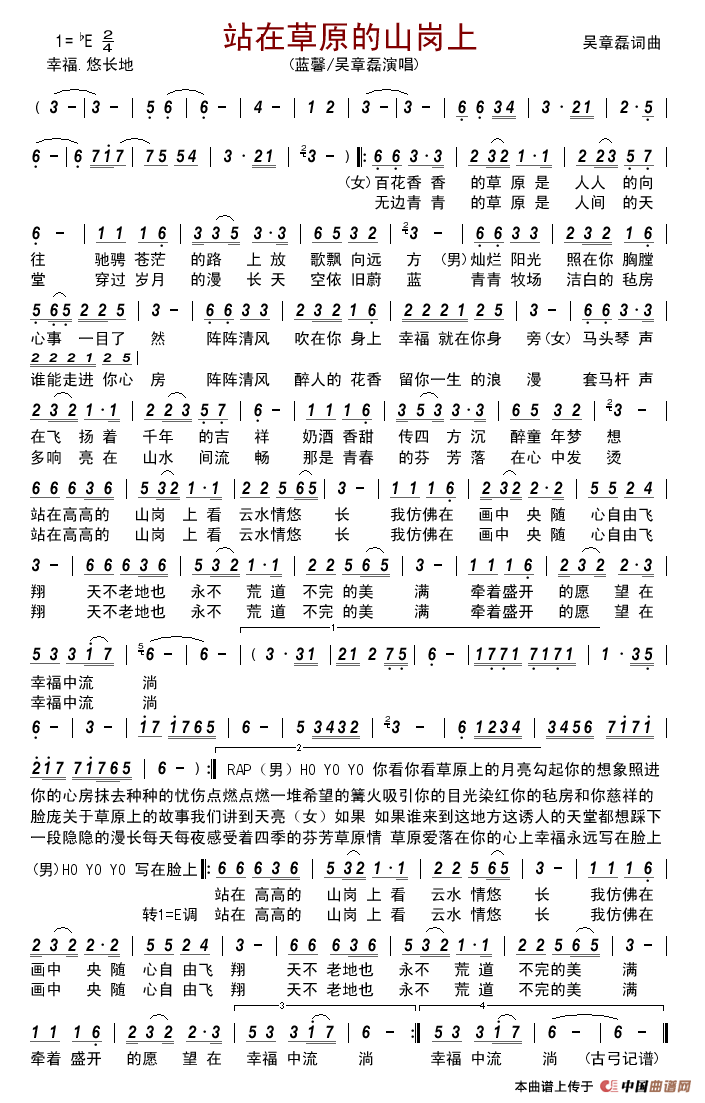 站在草原的山岗上
1= ♭E 2/4
吴章磊词曲
幸福.悠长地
(蓝馨/吴章磊演唱)
( 3 - | 3 - | 5 6 | 6 - | 4 - | 1 2 | 3 - | 3 - | 6 6 34 | 3 · 21 | 2 · 5 |
6 - | 6 717 | 75 54 | 3 · 21 | 3 - ) ‖: 6 6 3·3 | 2 32 1·1 | 2 23 5 7 |
(女)百花香 香 的草 原是 人人 的向
无边青 青 的草 原是 人间 的天
6 - | 11 16 | 335 3·3 | 65 32 | 3 - | 66 33 | 23 2 | 2 32 16 |
往 驰骋 苍茫 的路 上放 歌飘 向远 方 (男)灿烂 阳光 照在你 胸膛
堂 穿过 岁月 的漫 长天 空依 旧蔚 蓝 青青 牧场 洁白的 毡房
5 65 22 5 | 3 - | 66 33 | 22 2 16 | 222 1 2 5 | 3 - | 66 3·3 |
心事 一目了 然 阵阵清风 吹在你 身上 幸福 就在你身 旁(女) 马头琴 声
2 2 2 1 2 5 |
谁能走进 你心 房 阵阵清风 醉人的 花香 留你一生 的浪 漫 套马杆 声
2 32 1·1 | 2 23 5 7 | 6 - | 11 16 | 3 53 3·3 | 65 32 | 3 - |
在飞 扬着 千年 的吉 祥 奶酒 香甜 传四 方沉 醉童 年梦 想
多响 亮在 山水 间流 畅 那是 青春 的芬 芳落 在心 中发 烫
66 636 | 5 32 1·1 | 22 565 | 3 - | 11 16 | 2 32 2·2 | 55 24 |
站在高高的 山岗 上看 云水情悠 长 我仿佛在 画中 央随 心自由飞
站在高高的 山岗 上看 云水情悠 长 我仿佛在 画中 央随 心自由飞
3 - | 66 636 | 5 32 1·1 | 22 565 | 3 - | 11 16 | 2 32 2·3 |
翔 天不老地也 永不 荒道 不完的美 满 牵着盛开 的愿 望在
翔 天不老地也 永不 荒道 不完的美 满 牵着盛开 的愿 望在
1
53 317 | 6 - | 6 - | ( 3 · 31 | 21 2 75 | 6 - | 1771 7171 | 1 · 35 |
幸福中流 淌
幸福中流 淌
6 - | 3 - | 17 1765 | 6 - | 5 3432 | 3 - | 6 1234 | 3456 7171 |
2
217 71765 | 6 - ) :‖ RAP(男)HO YO YO 你看你看草原上的月亮勾起你的想象照进
你的心房抹去种种的忧伤点燃点燃一堆希望的篝火吸引你的目光染红你的毡房和你慈祥的
脸庞关于草原上的故事我们讲到天亮(女)如果 如果谁来到这地方这诱人的天堂都想踩下
一段隐隐的漫长每天每夜感受着四季的芬芳草原情 草原爱落在你的心上幸福永远写在脸上
(男)HO YO YO 写在脸上‖: 66 636 | 5 32 1·1 | 22 565 | 3 - | 11 16 |
站在 高高的 山岗 上看 云水 情悠 长 我仿佛在
转1=E调 站在 高高的 山岗 上看 云水 情悠 长 我仿佛在
2 32 2·2 | 55 24 | 3 - | 66 636 | 5 32 1·1 | 22 565 | 3 - |
画中 央随 心自 由飞 翔 天不 老地也 永不 荒道 不完的美 满
画中 央随 心自 由飞 翔 天不 老地也 永不 荒道 不完的美 满
3 4
11 16 | 2 32 2·3 | 53 317 | 6 - :‖ 53 317 | 6 - | 6 - ‖
牵着 盛开 的愿 望在 幸福 中流 淌 幸福 中流 淌 (古弓记谱)
本曲谱上传于 中国曲谱网